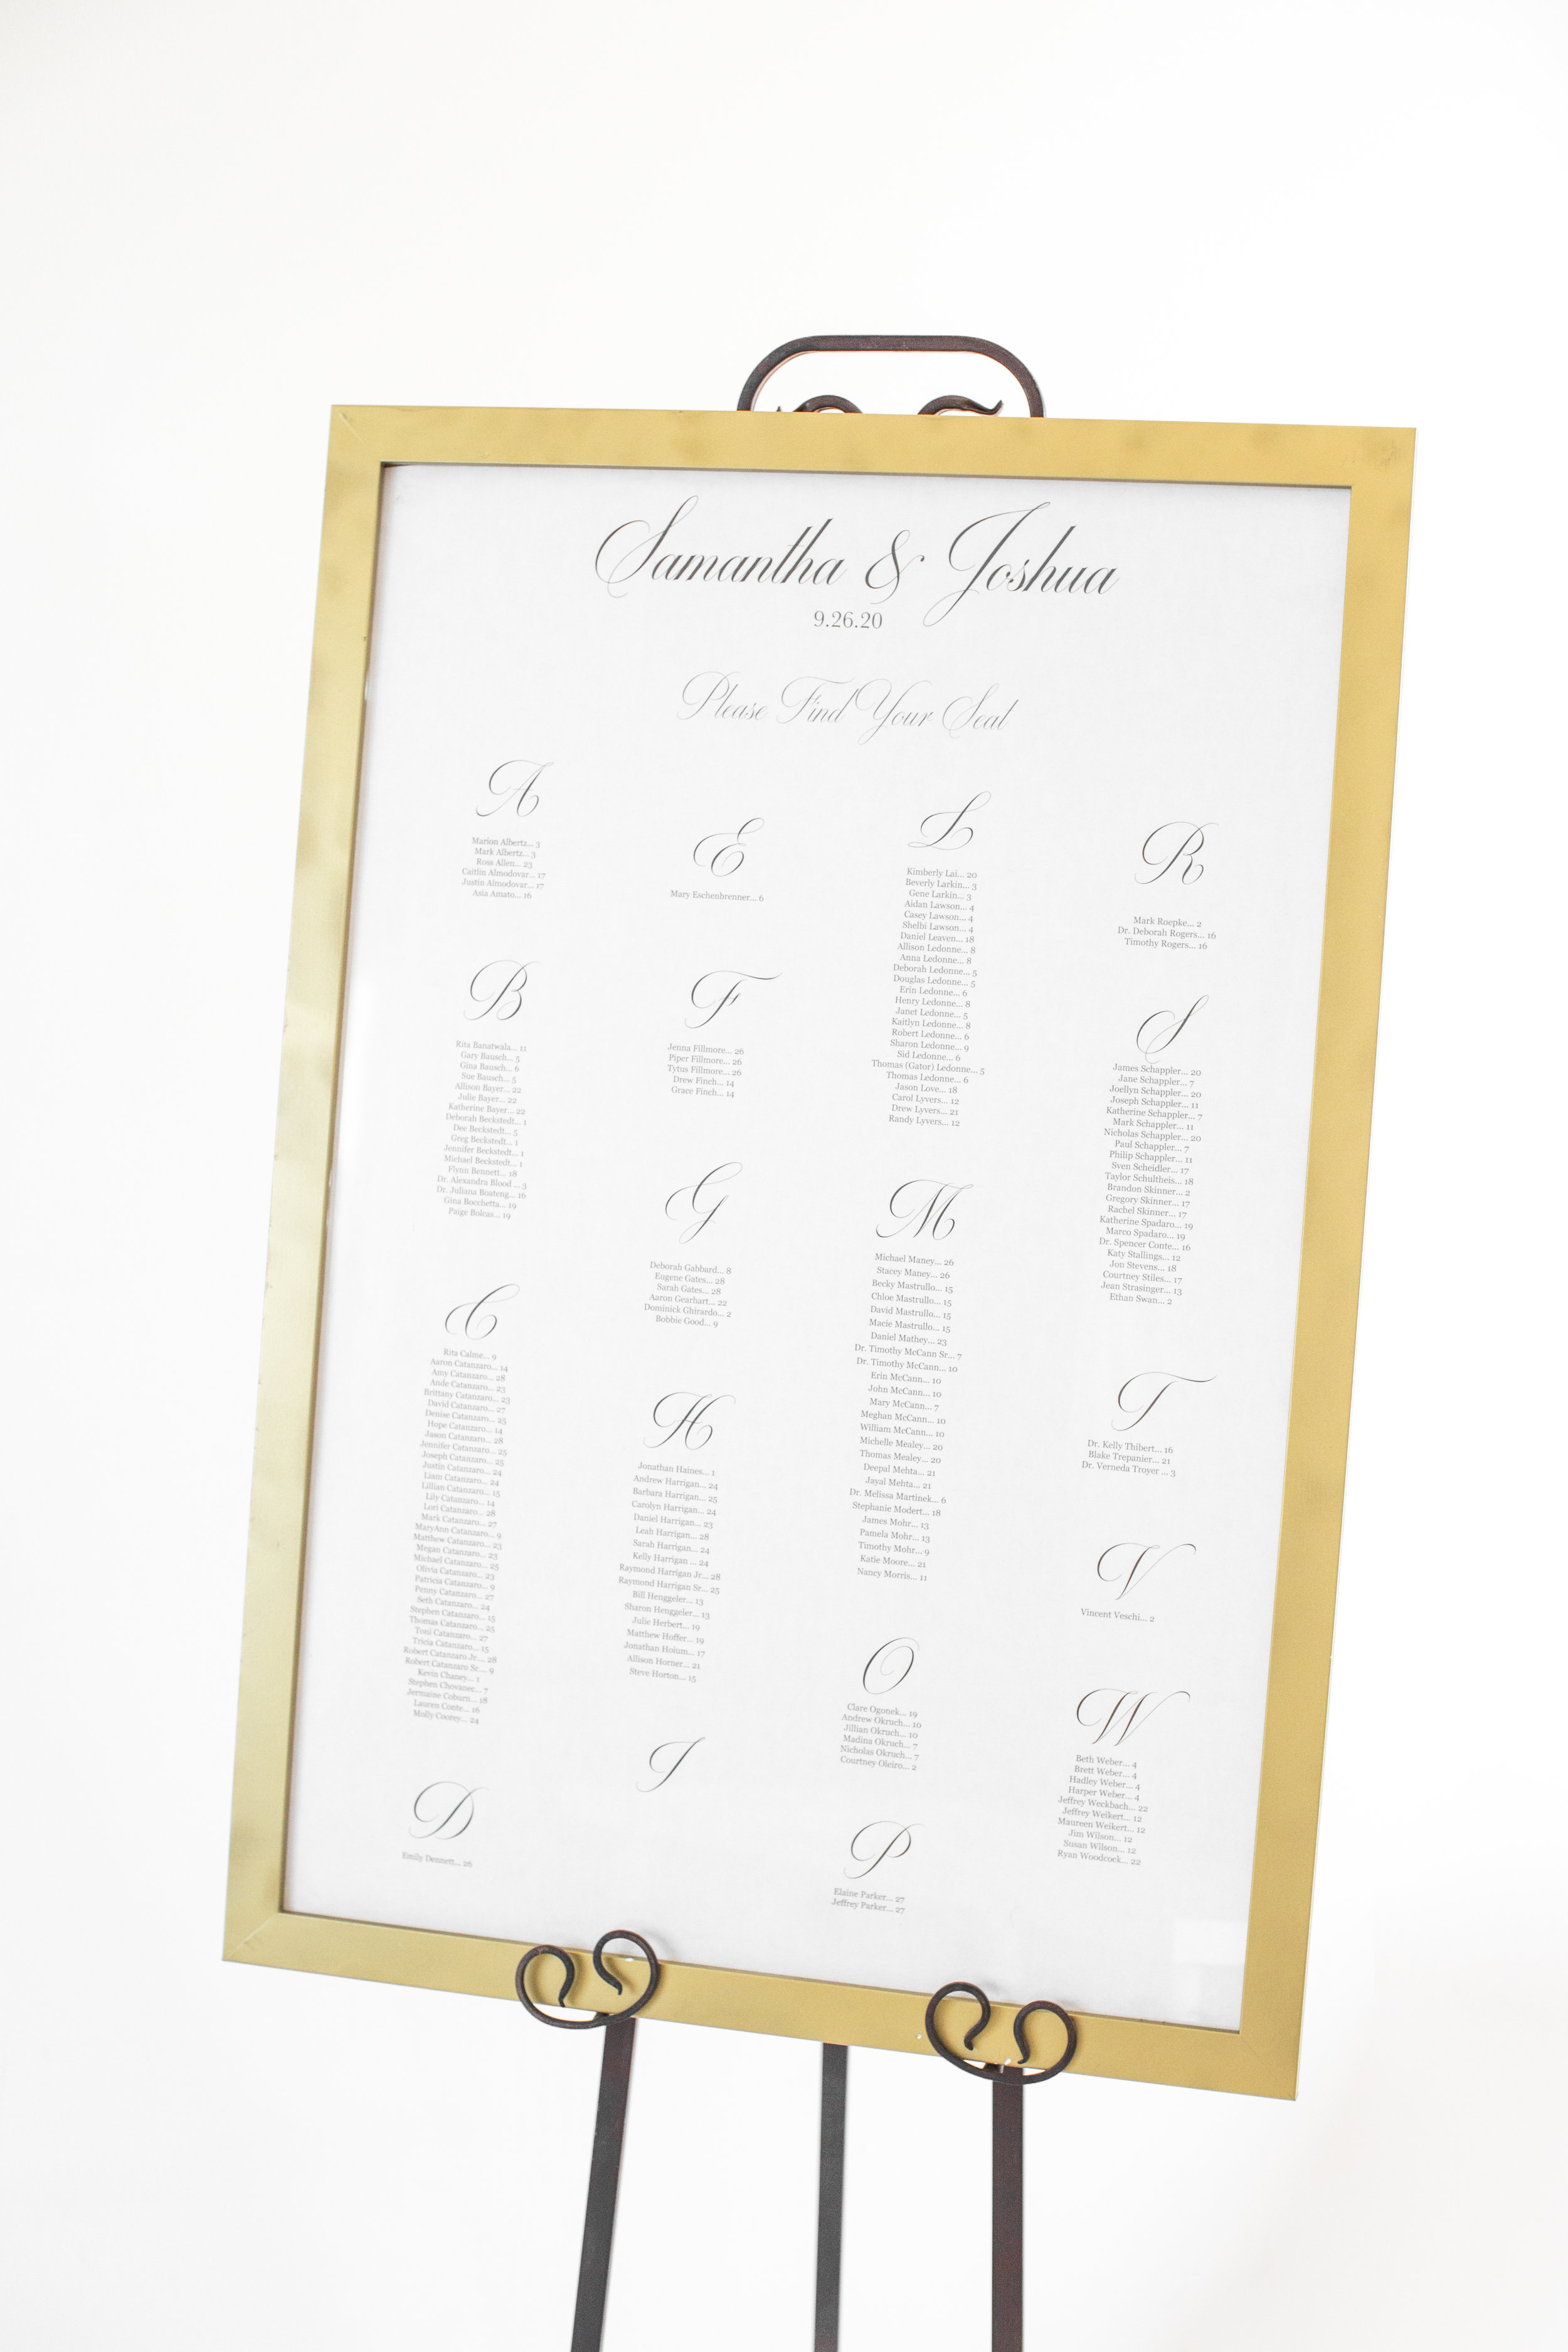 Samantha & Joshua
9.26.20
Please Find Your Seat
A
Marion Albertz... 3
Mark Albertz... 3
Ross Allen... 23
Caitlin Almodovar... 17
Justin Almodovar... 17
Asia Amato... 16
B
Rita Banatwala... 11
Gary Bausch... 5
Gina Bausch... 6
Sue Bausch... 5
Allison Bayer... 22
Julie Bayer... 22
Katherine Bayer... 22
Deborah Beckstedt... 1
Dee Beckstedt... 5
Greg Beckstedt... 1
Jennifer Beckstedt... 1
Michael Beckstedt... 1
Flynn Bennett... 18
Dr. Alexandra Blood ... 3
Dr. Juliana Boateng... 16
Gina Bocchetta... 19
Paige Bolcas... 19
C
Rita Calme... 9
Aaron Catanzaro... 14
Amy Catanzaro... 28
Ande Catanzaro... 23
Brittany Catanzaro... 23
David Catanzaro... 27
Denise Catanzaro... 25
Hope Catanzaro... 14
Jason Catanzaro... 28
Jennifer Catanzaro... 25
Joseph Catanzaro... 25
Justin Catanzaro... 24
Liam Catanzaro... 24
Lillian Catanzaro... 15
Lily Catanzaro... 14
Lori Catanzaro... 28
Mark Catanzaro... 27
MaryAnn Catanzaro... 9
Matthew Catanzaro... 23
Megan Catanzaro... 23
Michael Catanzaro... 25
Olivia Catanzaro... 23
Patricia Catanzaro... 9
Penny Catanzaro... 27
Seth Catanzaro... 24
Stephen Catanzaro... 15
Thomas Catanzaro... 25
Toni Catanzaro... 27
Tricia Catanzaro... 15
Robert Catanzaro Jr.... 28
Robert Catanzaro Sr.... 9
Kevin Chaney... 1
Stephen Chovanec... 7
Jermaine Coburn... 18
Lauren Conte... 16
Molly Coorey... 24
D
Emily Dennett... 26
E
Mary Eschenbrenner... 6
F
Jenna Fillmore... 26
Piper Fillmore... 26
Tytus Fillmore... 26
Drew Finch... 14
Grace Finch... 14
G
Deborah Gabbard... 8
Eugene Gates... 28
Sarah Gates... 28
Aaron Gearhart... 22
Dominick Ghirardo... 2
Bobbie Good... 9
H
Jonathan Haines... 1
Andrew Harrigan... 24
Barbara Harrigan... 25
Carolyn Harrigan... 24
Daniel Harrigan... 23
Leah Harrigan... 28
Sarah Harrigan... 24
Kelly Harrigan ... 24
Raymond Harrigan Jr... 28
Raymond Harrigan Sr... 25
Bill Henggeler... 13
Sharon Henggeler... 13
Julie Herbert... 19
Matthew Hoffer... 19
Jonathan Hoium... 17
Allison Horner... 21
Steve Horton... 15
I
L
Kimberly Lai... 20
Beverly Larkin... 3
Gene Larkin... 3
Aidan Lawson... 4
Casey Lawson... 4
Shelbi Lawson... 4
Daniel Leaven... 18
Allison Ledonne... 8
Anna Ledonne... 8
Deborah Ledonne... 5
Douglas Ledonne... 5
Erin Ledonne... 6
Henry Ledonne... 8
Janet Ledonne... 5
Kaitlyn Ledonne... 8
Robert Ledonne... 6
Sharon Ledonne... 9
Sid Ledonne... 6
Thomas (Gator) Ledonne... 5
Thomas Ledonne... 6
Jason Love... 18
Carol Lyvers... 12
Drew Lyvers... 21
Randy Lyvers... 12
M
Michael Maney... 26
Stacey Maney... 26
Becky Mastrullo... 15
Chloe Mastrullo... 15
David Mastrullo... 15
Macie Mastrullo... 15
Daniel Mathey... 23
Dr. Timothy McCann Sr... 7
Dr. Timothy McCann... 10
Erin McCann... 10
John McCann... 10
Mary McCann... 7
Meghan McCann... 10
William McCann... 10
Michelle Mealey... 20
Thomas Mealey... 20
Deepal Mehta... 21
Jayal Mehta... 21
Dr. Melissa Martinek... 6
Stephanie Modert... 18
James Mohr... 13
Pamela Mohr... 13
Timothy Mohr... 9
Katie Moore... 21
Nancy Morris... 11
O
Clare Ogonek... 19
Andrew Okruch... 10
Jillian Okruch... 10
Madina Okruch... 7
Nicholas Okruch... 7
Courtney Oleiro... 2
P
Elaine Parker... 27
Jeffrey Parker... 27
R
Mark Roepke... 2
Dr. Deborah Rogers... 16
Timothy Rogers... 16
S
James Schappler... 20
Jane Schappler... 7
Joellyn Schappler... 20
Joseph Schappler... 11
Katherine Schappler... 7
Mark Schappler... 11
Nicholas Schappler... 20
Paul Schappler... 7
Philip Schappler... 11
Sven Scheidler... 17
Taylor Schultheis... 18
Brandon Skinner... 2
Gregory Skinner... 17
Rachel Skinner... 17
Katherine Spadaro... 19
Marco Spadaro... 19
Dr. Spencer Conte... 16
Katy Stallings... 12
Jon Stevens... 18
Courtney Stiles... 17
Jean Strasinger... 13
Ethan Swan... 2
T
Dr. Kelly Thibert... 16
Blake Trepanier... 21
Dr. Verneda Troyer ... 3
V
Vincent Veschi... 2
W
Beth Weber... 4
Brett Weber... 4
Hadley Weber... 4
Harper Weber... 4
Jeffrey Weckbach... 22
Jeffrey Weikert... 12
Maureen Weikert... 12
Jim Wilson... 12
Susan Wilson... 12
Ryan Woodcock... 22